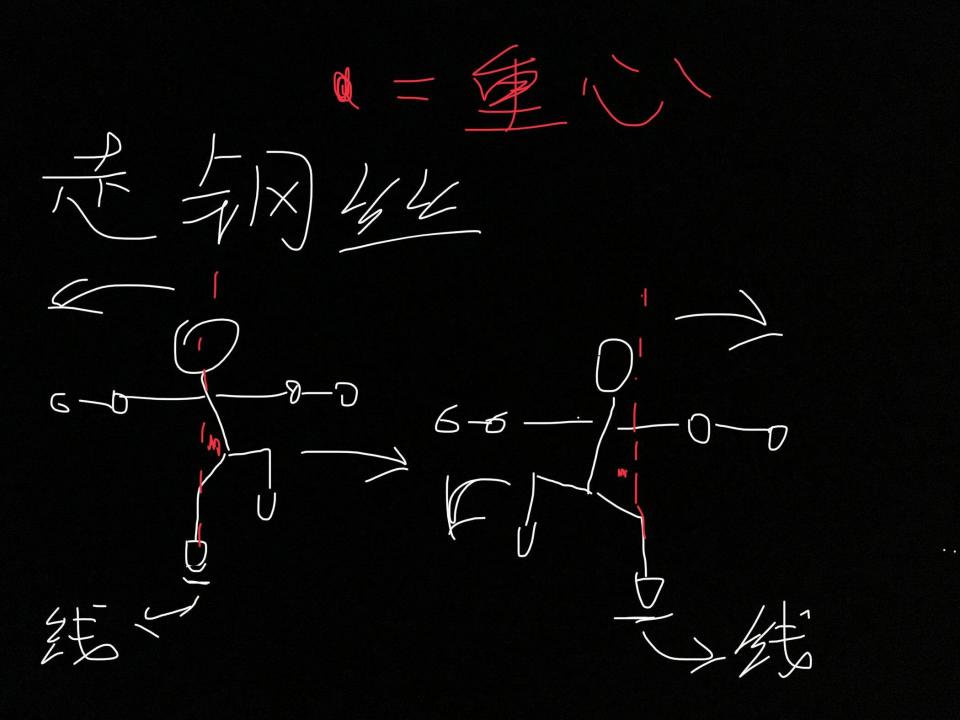 = 重心
走钢丝
线
线